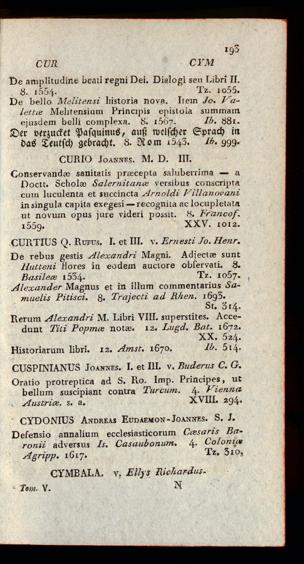 193
CUR CYM
De amplitudine beati regni Dei. Dialogi seu Libri II.
8. 1554. Tz. 1055.
De bello Melitensi historia nova. Item Jo. Va-
lettæ Melitensium Principis epistola summam
ejusdem belli complexa. 8. 1567. Ib. 881.
Der verzucket Pasquinus, auß welscher Sprach in
das Teutsch gebracht. 8. Rom 1543. Ib. 999.
CURIO Joannes. M. D. III.
Conservandæ sanitatis præcepta saluberrima — a
Doctt. Scholæ Salernitanæ versibus conscripta
cum luculenta et succincta Arnoldi Villanovani
in singula capita exegesi — recognita ac locupletata
ut novum opus jure videri possit. 8. Francof.
1559. XXV. 1012.
CURTIUS Q. Rufus. I. et III. v. Ernesti Jo. Henr.
De rebus gestis Alexandri Magni. Adjectæ sunt
Hutteni flores in eodem auctore observati. 8.
Basileæ 1534. Tz. 1057.
Alexander Magnus et in illum commentarius Sa-
muelis Pitisci. 8. Trajecti ad Rhen. 1693.
St. 314.
Rerum Alexandri M. Libri VIII. superstites. Acce-
dunt Titi Popmæ notæ. 12. Lugd. Bat. 1672.
XX. 524.
Historiarum libri. 12. Amst. 1670. Ib. 514.
CUSPINIANUS Joannes. I. et III. v. Buderus C. G.
Oratio protreptica ad S. Ro. Imp. Principes, ut
bellum suscipiant contra Turcum. 4. Viennæ
Austriæ. s. a. XVIII. 294.
CYDONIUS Andreas Eudaemon-Joannes. S. J.
Defensio annalium ecclesiasticorum Cæsaris Ba-
ronii adversus Is. Casaubonum. 4. Coloniæ
Agripp. 1617. Tz. 310,
CYMBALA. v. Ellys Richardus.
Tom. V. N